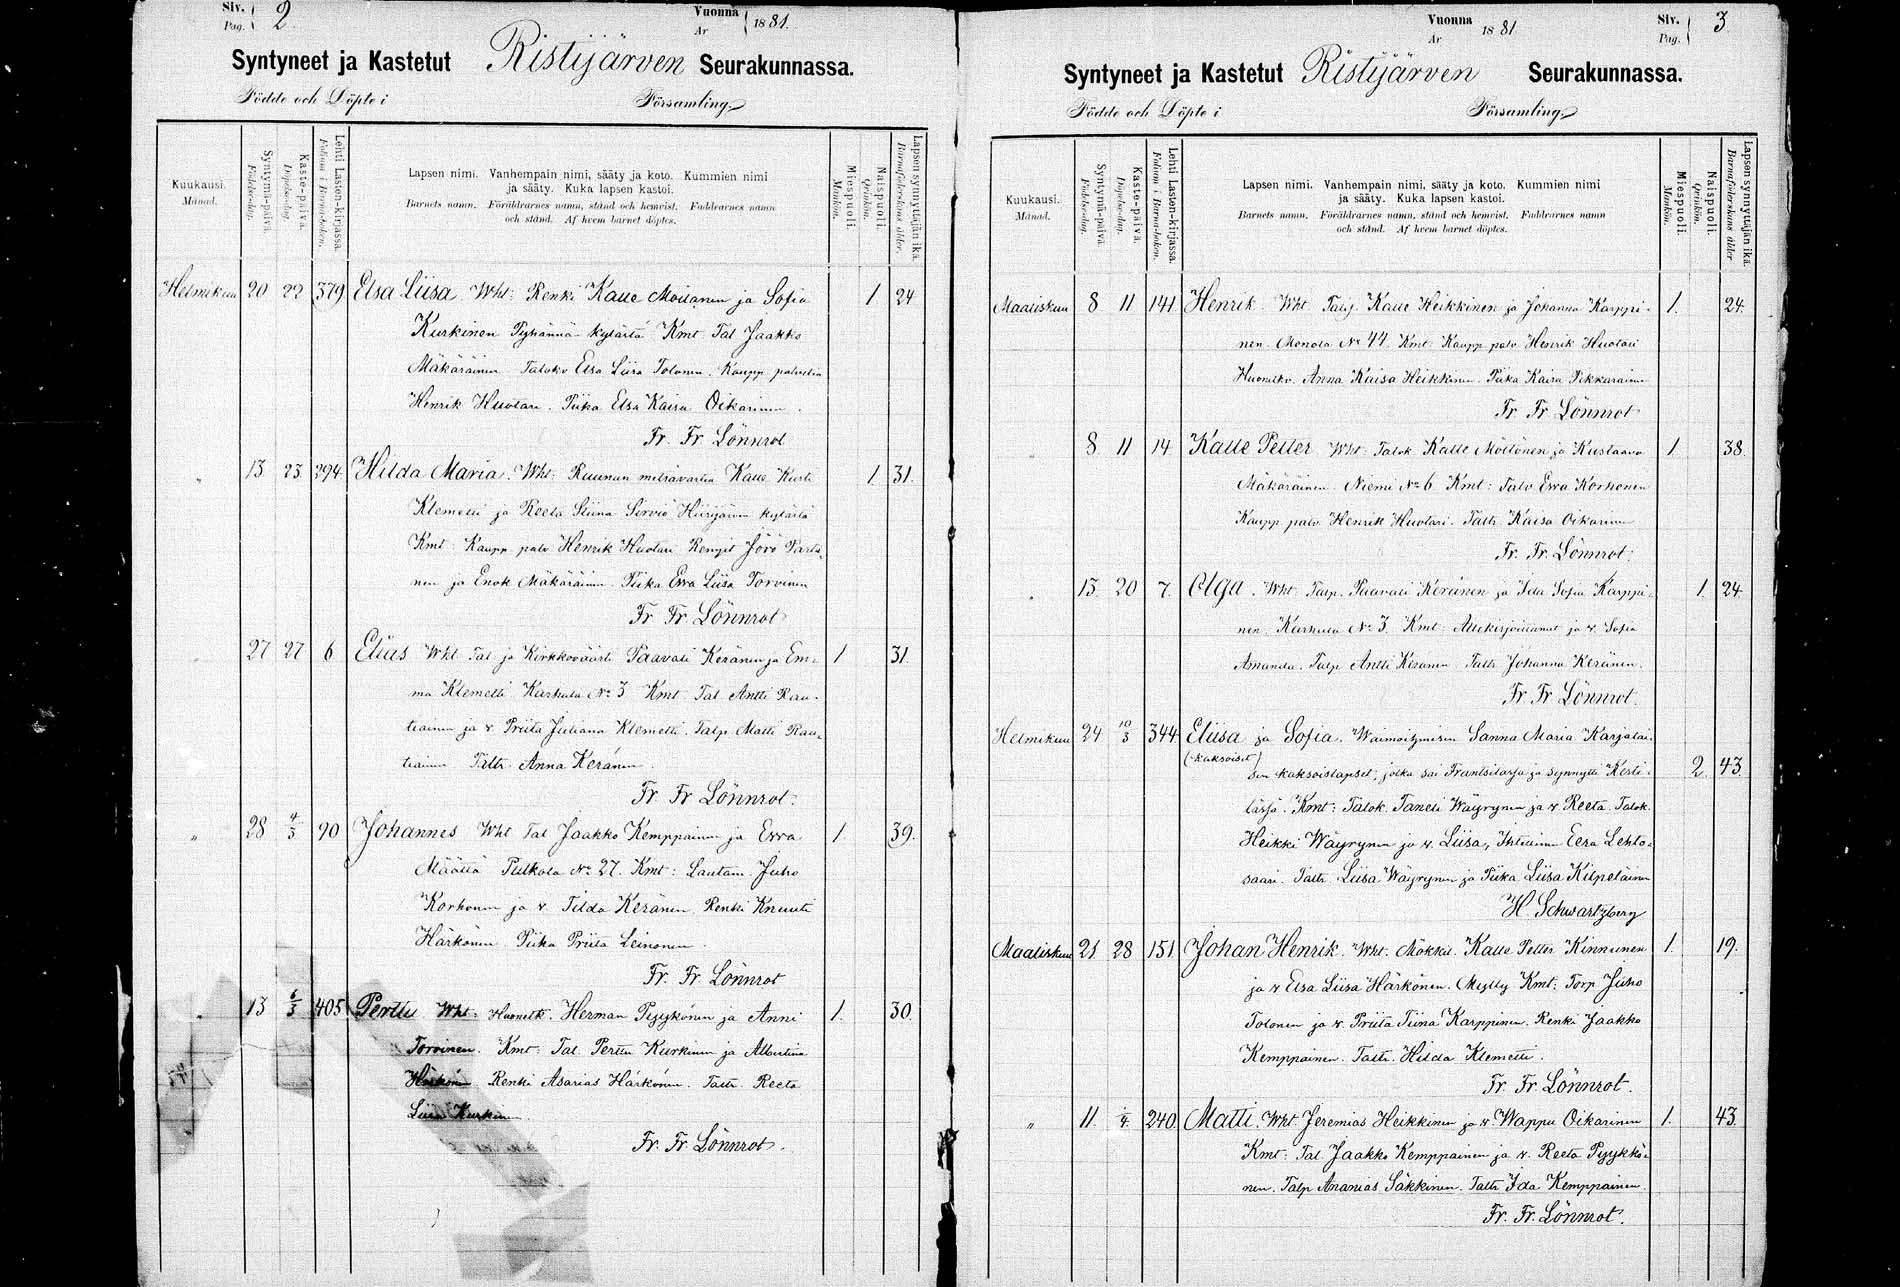 Siv. 2
Pag.
Vuonna 1881.
År
Syntyneet ja Kastetut Ristijärven Seurakunnassa.
Födde och Döpte i Församling.
Kuukausi.
Månad.
Syntymä-päivä.
Födelse-dag.
Kaste-päivä.
Döpelse-dag.
Lehti Lasten-kirjassa.
Folium i Barna-boken.
Lapsen nimi. Vanhempain nimi, sääty ja koto. Kummien nimi
ja sääty. Kuka lapsen kastoi.
Barnets namn. Föräldrarnes namn, stånd och hemvist. Faddrarnes namn
och stånd. Af hvem barnet döptes.
Miespuoli.
Mankön.
Naispuoli.
Qvinkön.
Lapsen synnyttäjän ikä.
Barnaföderskans ålder.
Helmikuu 20 22 379 Elsa Liisa. Wht: Renki Kalle Moilanen ja Sofia 1 24
Kurkinen Pyhännän kylästä. Kmt. Tal Jaakko
Mäkäräinen Talokv Elsa Liisa Tolonen. Kaupp palvelia
Henrik Huotari. Piika Elsa Kaisa Oikarinen.
Fr. Fr. Lönnrot
" 13 23 294 Hilda Maria. Wht: Ruunun metsävartia Kalle Kusti 1 31.
Klemetti ja Reeta Stiina Serviö Hiirijärven kylästä
Kmt: Kaupp palv Henrik Huotari Rengit Jörö Parta-
nen ja Enok Mäkäräinen. Piika Ewa Liisa Torvinen
Fr. Fr. Lönnrot
" 27 27 6 Elias Wht Tal ja Kirkkoväärti Paavali Keränen ja Em- 1 31
ma Klemetti Karhula No 3 Kmt Tal. Antti Rau-
tiainen ja v. Priita Juliana Klemetti. Talp Matti Rau-
tiainen Taltr. Anna Keränen.
Fr. Fr. Lönnrot.
" 28 4/3 90 Johannes Wht Tal Jaakko Kemppainen ja Ewa 1. 39.
Määttä Pulkola No 27. Kmt: Lautam. Juho
Korhonen ja v. Tilda Keränen. Renki Knuuti
Härkönen. Piika Priita Leinonen.
Fr. Fr. Lönnrot
" 13 6/3 405 Perttu Wht. Huonelk. Herman Pyykönen ja Anni 1. 30.
Torvinen. Kmt: Tal. Perttu Kurkinen ja Albertina
Härkönen Renki Asarias Härkönen. Taltr. Reeta
Liisa Kurkinen.
Fr. Fr. Lönnrot.
Vuonna 1881
År
Siv. 3.
Pag.
Syntyneet ja Kastetut Ristijärven Seurakunnassa.
Födde och Döpte i Församling.
Kuukausi.
Månad.
Syntymä-päivä.
Födelse-dag.
Kaste-päivä.
Döpelse-dag.
Lehti Lasten-kirjassa.
Folium i Barna-boken.
Lapsen nimi. Vanhempain nimi, sääty ja koto. Kummien nimi
ja sääty. Kuka lapsen kastoi.
Barnets namn. Föräldrarnes namn, stånd och hemvist. Faddrarnes namn
och stånd. Af hvem barnet döptes.
Miespuoli.
Mankön.
Naispuoli.
Qvinkön.
Lapsen synnyttäjän ikä.
Barnaföderskans ålder
Maaliskuu 8 11 141 Henrik. Wht. Talp. Kalle Heikkinen ja Johanna Karppi- 1. 24.
nen. Monola No 44. Kmt: Kaupp palv Henrik Huotari
Huonelkv. Anna Kaisa Heikkinen. Piika Kaisa Pikkarainen
Fr. Fr. Lönnrot
8 11 14 Kalle Petter Wht: Talok Kalle Möttönen ja Kustaava 1 38.
Mäkäräinen. Niemi No 6. Kmt: Talv Ewa Korhonen
Kaupp palv Henrik Huotari. Taltr Kaisa Oikarinen
Fr. Fr. Lönnrot.
" 15. 20 7. Olga. Wht: Talp. Paavali Keränen ja Ida Sofia Karppi- 1. 24.
nen. Karhula No 3. Kmt: Allekirjoittanut ja v. Sofia
Amanda. Talp Antti Keränen Taltr Johanna Keränen.
Fr. Fr. Lönnrot.
Helmikuu 24 10/3 344 Eliisa ja Sofia. Waimoihmisen Sanna Maria Karjalai-
(kaksoiset) sen kaksoislapset, jotka sai Frantsilassa ja synnytti Kesti- 2. 43.
lässä. Kmt: Talok. Taneli Wäyrynen ja v Reeta. Talok.
Heikki Wäyrynen ja v. Liisa, Ihtiäinen Eera Lehto-
saari. Taltr. Liisa Wäyrynen ja Piika Liisa Kilpeläinen
H. Schwartzberg
Maaliskuu 21 28 151 Johan Henrik. Wht. Mökkil. Kalle Petter Kinnunen 1. 19.
ja v Elsa Liisa Härkönen. Mylly Kmt: Torp Juho
Tolonen ja v. Priita Tiina Karppinen. Renki Jaakko
Kemppainen. Taltr. Hilda Klemetti.
Fr. Fr. Lönnrot.
" 11. 1/4 240. Matti. Wht Jeremias Heikkinen ja v. Wappu Oikarinen 1. 43.
Kmt: Tal. Jaakko Kemppainen ja v. Reeta Pyykkö-
nen. Talp Ananias Säkkinen. Taltr Ida Kemppainen.
Fr. Fr. Lönnrot.